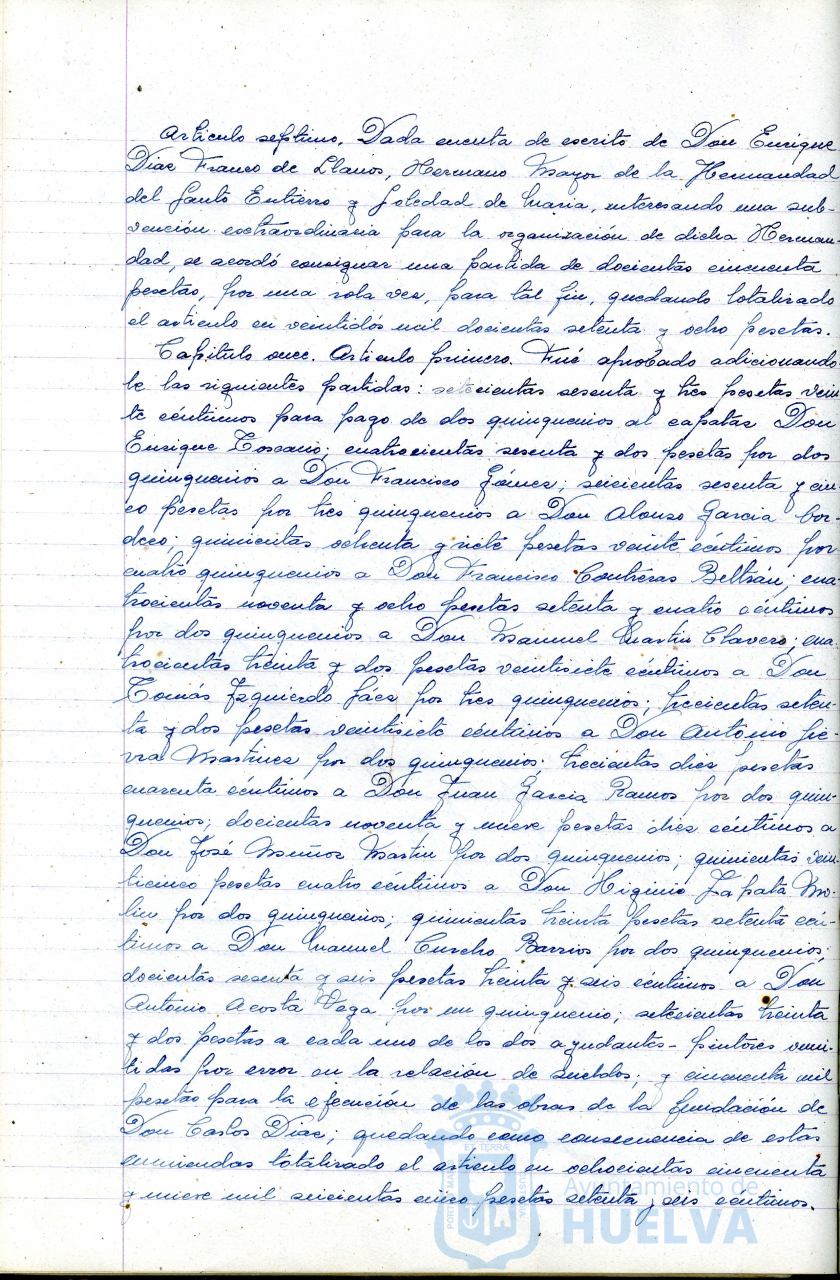 Articulo septimo. Dada cuenta de escrito de Don Enrique
Diaz Franco de Llanos, Hermano Mayor de la Hermandad
del Santo Entierro y Soledad de Maria, interesando una sub-
vención extraordinaria para la organización de dicha Herman
dad, se acordó consignar una partida de docientas cincuenta
pesetas, por una sola vez, para tal fin, quedando totalizado
el articulo en veintidós mil docientas setenta y ocho pesetas.
Capitulo once. Articulo primero. Fué aprobado adicionando
le las siguientes partidas: setecientas sesenta y tres pesetas vein
te céntimos para pago de dos quinquenios al capataz Don
Enrique Toscano; cuatrocientas sesenta y dos pesetas por dos
quinquenios a Don Francisco Gómez; seicientas sesenta y cin
co pesetas por tres quinquenios a Don Alonso Garcia Cor-
dero; quinientas ochenta y siete pesetas veinte céntimos por
cuatro quinquenios a Don Francisco Contreras Beltrán; cua
trocientas noventa y ocho pesetas setenta y cuatro céntimos
por dos quinquenios a Don Manuel Martin Clavero; cua
trocientas treinta y dos pesetas veintisiete céntimos a Don
Tomás Izquierdo Sáez por tres quinquenios; trecientas seten-
ta y dos pesetas veintisiete céntimos a Don Antonio
Martinez por dos quinquenios; trecientas diez pesetas
cuarenta céntimos a Don Juan Garcia Ramos por dos quin-
quenios; docientas noventa y nueve pesetas diez céntimos a
Don José Muñoz Martin por dos quinquenios; quinientas vein
ticinco pesetas cuatro céntimos a Don Higinio Zapata Mo-
por dos quinquenios; quinientas treinta pesetas setenta cén-
timos a Don Manuel Barrios por dos quinquenios;
docientas sesenta y seis pesetas treinta y seis céntimos a Don
Antonio Acosta Vega por un quinquenio; setecientas treinta
y dos pesetas a cada uno de los dos ayudantes-pintores omi-
tidas por error en la relación de sueldos; y cincuenta mil
pesetas para la ejecución de las obras de la fundación de
Don Carlos Diaz; quedando como consecuencia de estas
enmiendas totalizado el articulo en ochocientas cincuenta
y nueve mil seicientas cinco pesetas setenta y seis céntimos.
Ayuntamiento de
HUELVA